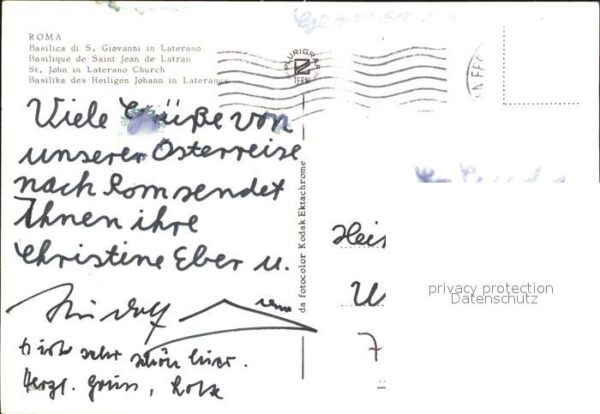 ROMA
Basilica di S. Giovanni in Laterano
Basilique de Saint Jean de Latran
St. John in Laterano Church
Basilika des Heiligen Johann in Lateranus
PLURIGRAF
TERNI
Viele Grüße von
unserer Osterreise
nach Rom sendet
Ihnen ihre
Christine Eber u.
Rudolf
sehr schön hier.
Herzl. Gruss,
da fotocolor Kodak Ektachrome
Heis
U
7
privacy protection
Datenschutz